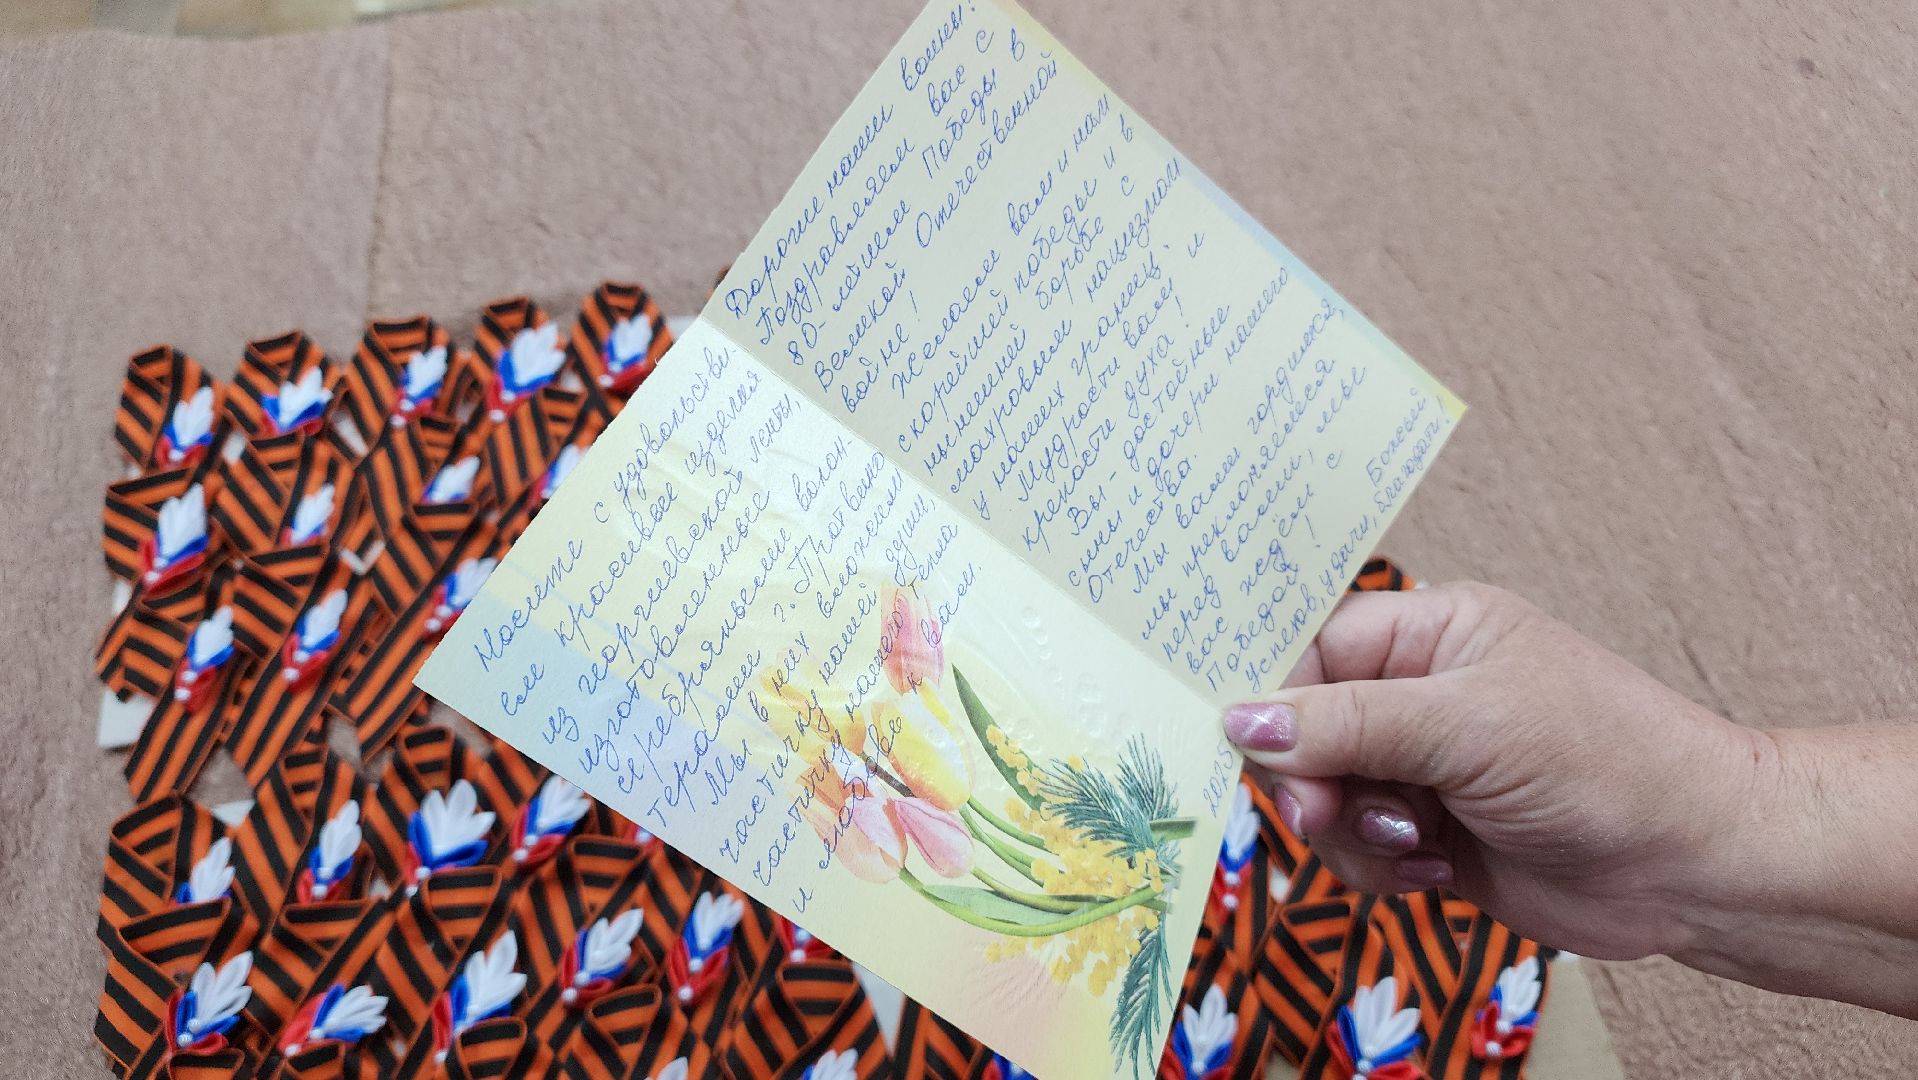 Дорогие наши воины!
Поздравляем вас с
80-летием Победы в
Великой Отечественной
войне!
Желаем вам и нам
скорейшей победы и в
нынешней борьбе с
махровым нацизмом
у наших границ!
Мудрости вам и
крепости духа!
Вы - достойные
сыны и дочери нашего
Отечества.
Мы вами гордимся,
мы преклоняемся
перед вами, мы
вас ждём с
Победой!
Успехов, удачи, Божьей
благодати!
Носите с удовольстви-
ем красивые изделия
из георгиевской ленты,
изготовленные
серебряными волон-
терами г. Протвино
Мы в них вложили
частичку нашей души,
частичку нашего тепла
и любовь к вам.
2025